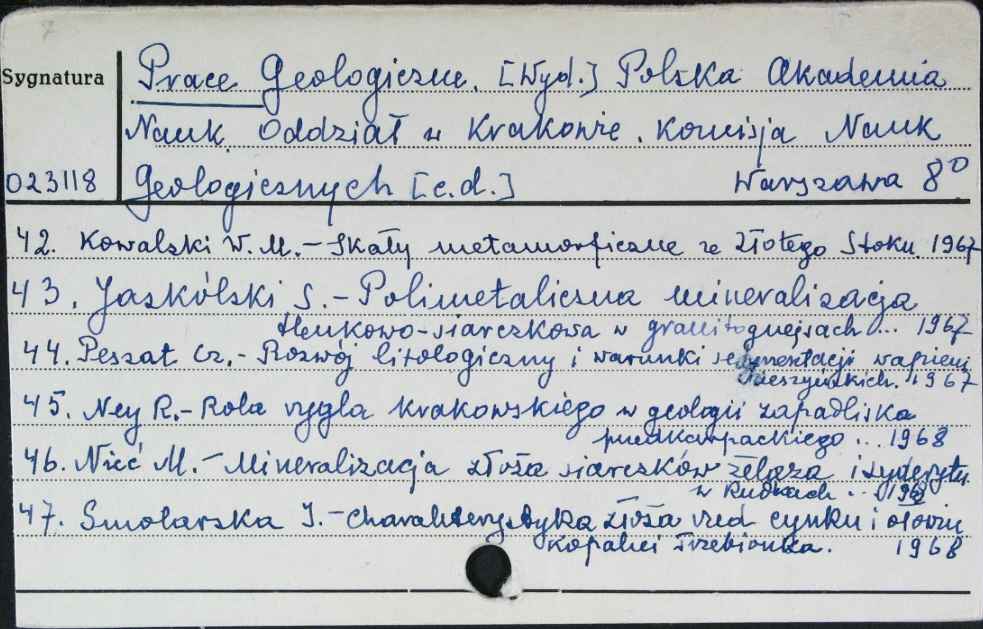 Sygnatura
Prace Geologiczne. [Wyd.] Polska Akademia
Nauk. Oddział w Krakowie. Komisja Nauk
023118 Geologicznych [c.d.] Warszawa 8⁰
42. Kowalski W. M. - Skały metamorficzne ze Złotego Stoku. 1967
43. Jaskólski S. - Polimetaliczna mineralizacja
tlenkowo-siarczkowa w granitognejsach... 1967
44. Peszat Cz. - Rozwój litologiczny i warunki sedymentacji wapieni
cieszyńskich. 1967
45. Ney R. - Rola rygla krakowskiego w geologii zapadliska
przedkarpackiego... 1968
46. Nieć M. - Mineralizacja złoża siarczków żelaza i syderytu
w Rudkach... 1968
47. Smolarska I. - Charakterystyka złoża rud cynku i ołowiu
kopalni Trzebionka. 1968